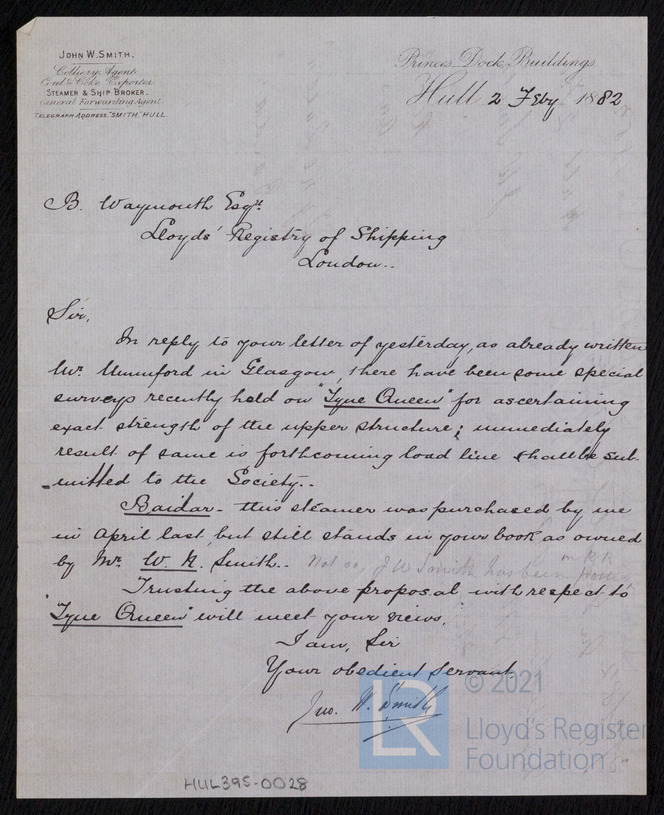 JOHN W. SMITH.
Colliery Agent
Coal & Coke Exporter
STEAMER & SHIP BROKER.
General Forwarding Agent
TELEGRAPH ADDRESS, "SMITH," HULL.
Princes Dock Buildings
Hull 2 Feby 1882
B. Waymouth Esqre
Lloyds' Registry of Shipping
London..
Sir,
In reply to your letter of yesterday, as already written
Mr. Mumford in Glasgow, there have been some special
surveys recently held on "Tyne Queen" for ascertaining
exact strength of the upper structure; immediately
result of same is forthcoming load line shall be sub-
-mitted to the Society..
Baidar - this steamer was purchased by me
in April last, but still stands in your book as owned
by Mr. W. R. Smith.. Not so, J W Smith has been in RB
Trusting the above proposal with respect to
"Tyne Queen" will meet your views,
I am, Sir
Your obedient servant
Jno. W. Smith
© 2021
LR
Lloyd's Register
Foundation
HUL395-0028